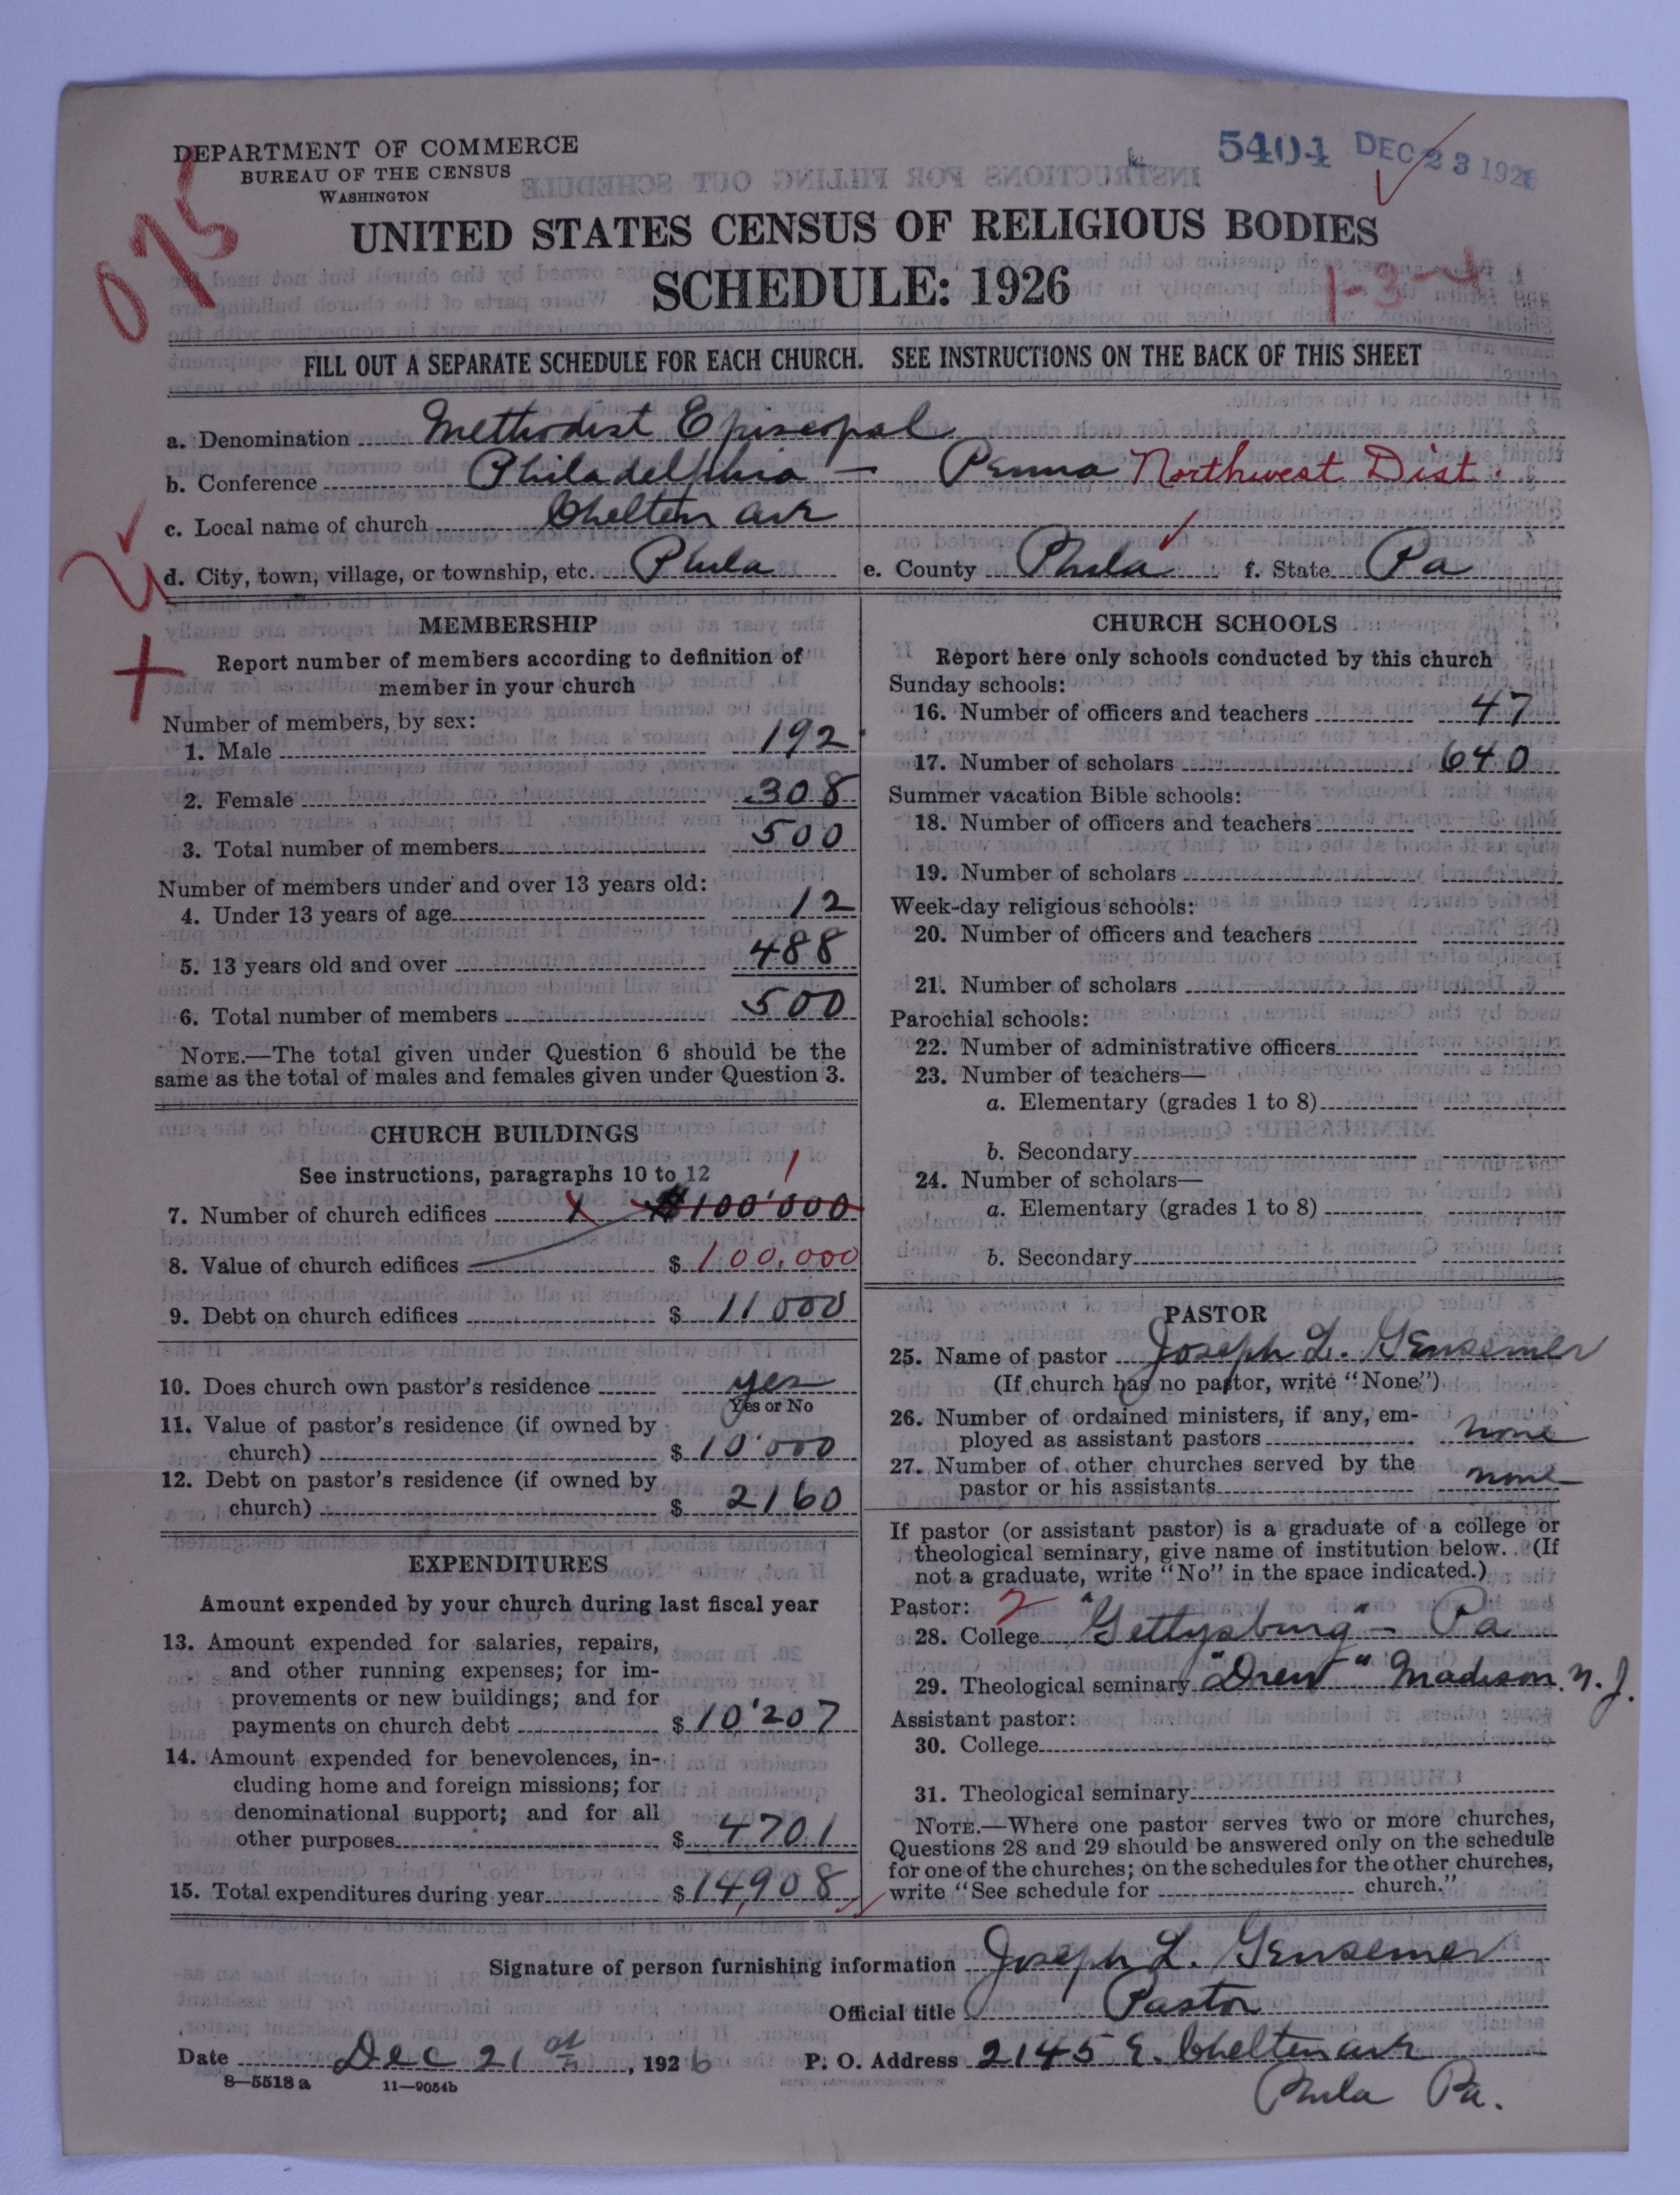 DEPARTMENT OF COMMERCE
BUREAU OF THE CENSUS
WASHINGTON
5404 DEC 23 1926
075
UNITED STATES CENSUS OF RELIGIOUS BODIES
SCHEDULE: 1926
1-3-4
FILL OUT A SEPARATE SCHEDULE FOR EACH CHURCH. SEE INSTRUCTIONS ON THE BACK OF THIS SHEET
a. Denomination Methodist Episcopal
b. Conference Philadelphia — Penna Northwest Dist.
c. Local name of church Chelten ave
d. City, town, village, or township, etc. Phila e. County Phila f. State Pa
MEMBERSHIP
Report number of members according to definition of
member in your church
Number of members, by sex:
1. Male 192
2. Female 308
3. Total number of members 500
Number of members under and over 13 years old:
4. Under 13 years of age 12
5. 13 years old and over 488
6. Total number of members 500
NOTE.—The total given under Question 6 should be the
same as the total of males and females given under Question 3.
CHURCH BUILDINGS
See instructions, paragraphs 10 to 12
7. Number of church edifices $100'000 1
8. Value of church edifices $ 100,000
9. Debt on church edifices $ 11000
10. Does church own pastor's residence yes
Yes or No
11. Value of pastor's residence (if owned by
church) $ 10'000
12. Debt on pastor's residence (if owned by
church) $ 2160
EXPENDITURES
Amount expended by your church during last fiscal year
13. Amount expended for salaries, repairs,
and other running expenses; for im-
provements or new buildings; and for
payments on church debt $ 10'207
14. Amount expended for benevolences, in-
cluding home and foreign missions; for
denominational support; and for all
other purposes $ 4701
15. Total expenditures during year $ 14,908
CHURCH SCHOOLS
Report here only schools conducted by this church
Sunday schools:
16. Number of officers and teachers 47
17. Number of scholars 640
Summer vacation Bible schools:
18. Number of officers and teachers
19. Number of scholars
Week-day religious schools:
20. Number of officers and teachers
21. Number of scholars
Parochial schools:
22. Number of administrative officers
23. Number of teachers—
a. Elementary (grades 1 to 8)
b. Secondary
24. Number of scholars—
a. Elementary (grades 1 to 8)
b. Secondary
PASTOR
25. Name of pastor Joseph L. Gensemer
(If church has no pastor, write "None")
26. Number of ordained ministers, if any, em-
ployed as assistant pastors none
27. Number of other churches served by the
pastor or his assistants none
If pastor (or assistant pastor) is a graduate of a college or
theological seminary, give name of institution below. (If
not a graduate, write "No" in the space indicated.)
Pastor: 2
28. College "Gettysburg" - Pa
29. Theological seminary "Drew" Madison, N. J.
Assistant pastor:
30. College
31. Theological seminary
NOTE.—Where one pastor serves two or more churches,
Questions 28 and 29 should be answered only on the schedule
for one of the churches; on the schedules for the other churches,
write "See schedule for church."
Signature of person furnishing information Joseph L. Gensemer
Official title Pastor
Date Dec 21 st, 1926 P. O. Address 2145 E. Chelten ave
Phila Pa.
8—5518 a 11—9054b